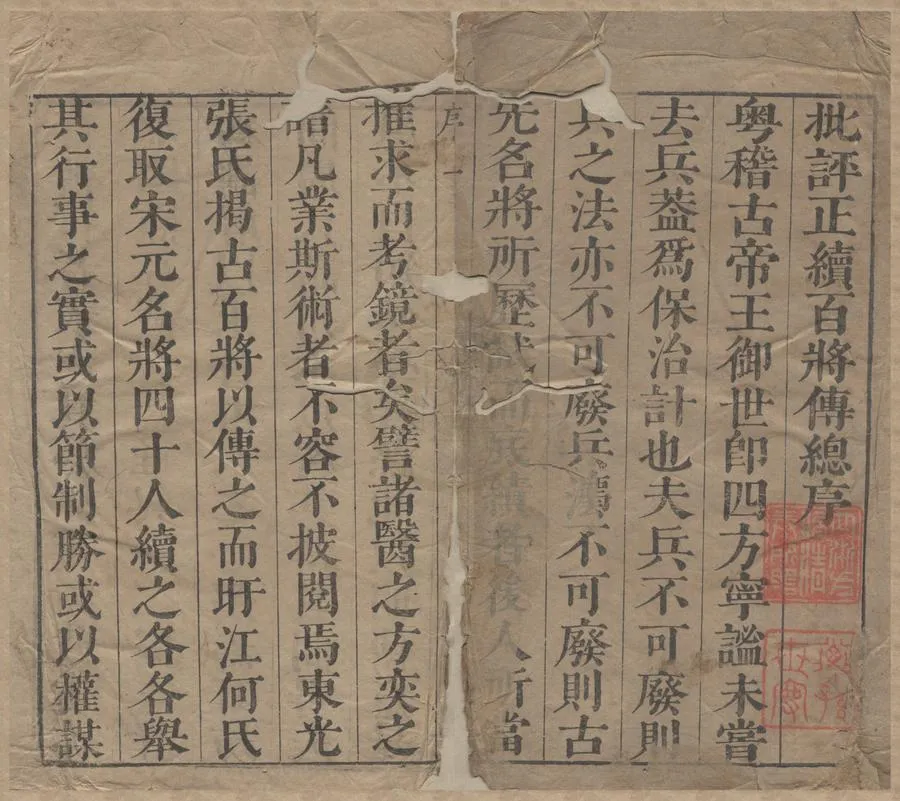 批評正續百將傳總序
粤稽古帝王御世卽四方寧謐未嘗
去兵葢爲保治計也夫兵不可廢則
兵之法亦不可廢兵灋不可廢則古
先名將所歷試而成績者後人所當
序 一
推求而考鏡者矣譬諸醫之方奕之
譜凡業斯術者不容不披閱焉東光
張氏揭古百將以傳之而盱江何氏
復取宋元名將四十人續之各各舉
其行事之實或以節制勝或以權謀